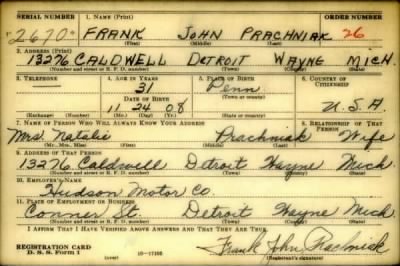 SERIAL NUMBER 1. NAME (Print) ORDER NUMBER
"2670" FRANK JOHN PRACHNIAK 26
(First) (Middle) (Last)
2. ADDRESS (Print)
13276 CALDWELL DETROIT WAYNE MICH
(Number and street or R. F. D. number) (Town) (County) (State)
3. TELEPHONE 4. AGE IN YEARS 5. PLACE OF BIRTH 6. COUNTRY OF CITIZENSHIP
— 31 Penn
DATE OF BIRTH (Town or county)
11 24 08 U.S.A.
(Exchange) (Number) (Mo.) (Day) (Yr.) (State or country)
7. NAME OF PERSON WHO WILL ALWAYS KNOW YOUR ADDRESS 8. RELATIONSHIP OF THAT PERSON
Mrs. Natalie Prachniak Wife
(Mr., Mrs., Miss) (First) (Middle) (Last)
9. ADDRESS OF THAT PERSON
13276 Caldwell Detroit Wayne Mich
(Number and street or R. F. D. number) (Town) (County) (State)
10. EMPLOYER'S NAME
Hudson Motor Co.
11. PLACE OF EMPLOYMENT OR BUSINESS
Conner St. Detroit Wayne Mich.
(Number and street or R. F. D. number) (Town) (County) (State)
I AFFIRM THAT I HAVE VERIFIED ABOVE ANSWERS AND THAT THEY ARE TRUE.
REGISTRATION CARD
D. S. S. Form 1 (over) 16—17105 Frank John Prachniak
(Registrant's signature)